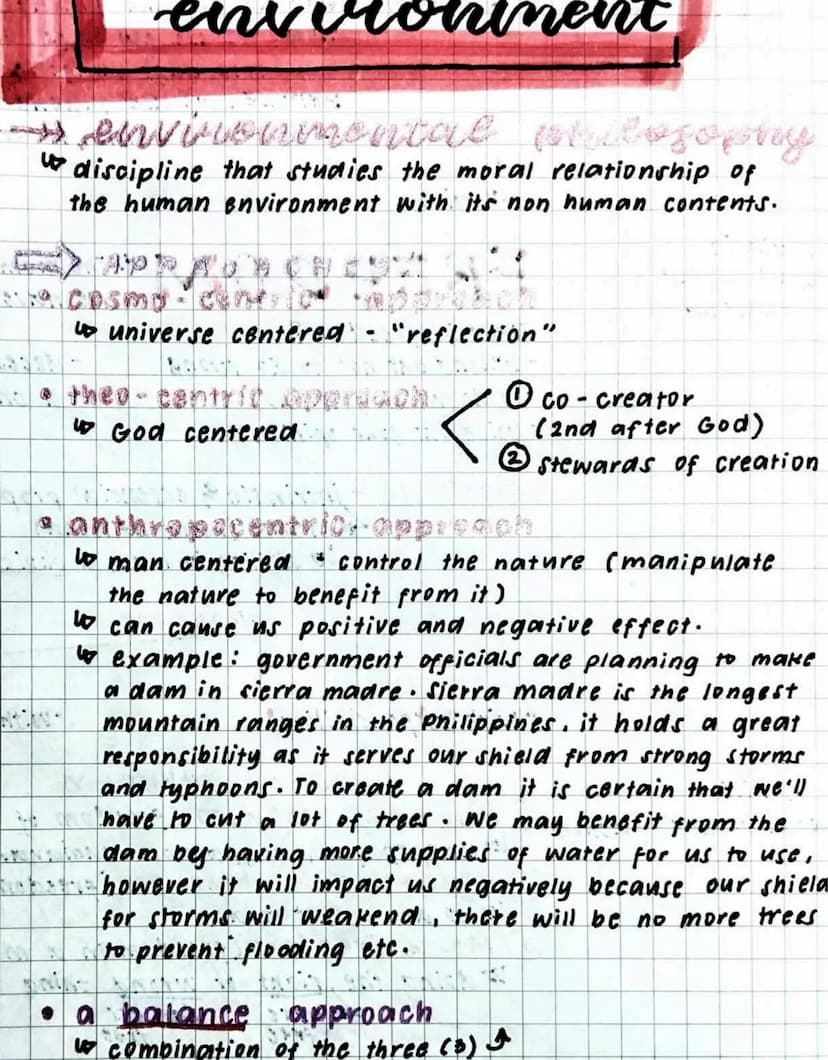 environment
→» environmental philosophy
↳ discipline that studies the moral relationship of
the human environment with its non human contents.
⇒ APPROACHES:
• cosmo-centric approach
↳ universe centered - "reflection"
• theo-centric approach
↳ God centered
① co-creator
(2nd after God)
② stewards of creation
• anthropocentric approach
↳ man centered • control the nature (manipulate
the nature to benefit from it)
↳ can cause us positive and negative effect.
↳ example: government officials are planning to make
a dam in sierra madre. Sierra madre is the longest
mountain ranges in the Philippines, it holds a great
responsibility as it serves our shield from strong storms
and typhoons. To create a dam it is certain that we'll
have to cut a lot of trees. We may benefit from the
dam by having more supplies of water for us to use,
however it will impact us negatively because our shield
for storms will weakend, there will be no more trees
to prevent flooding etc.
• a balance approach
↳ combination of the three (3) ⤴